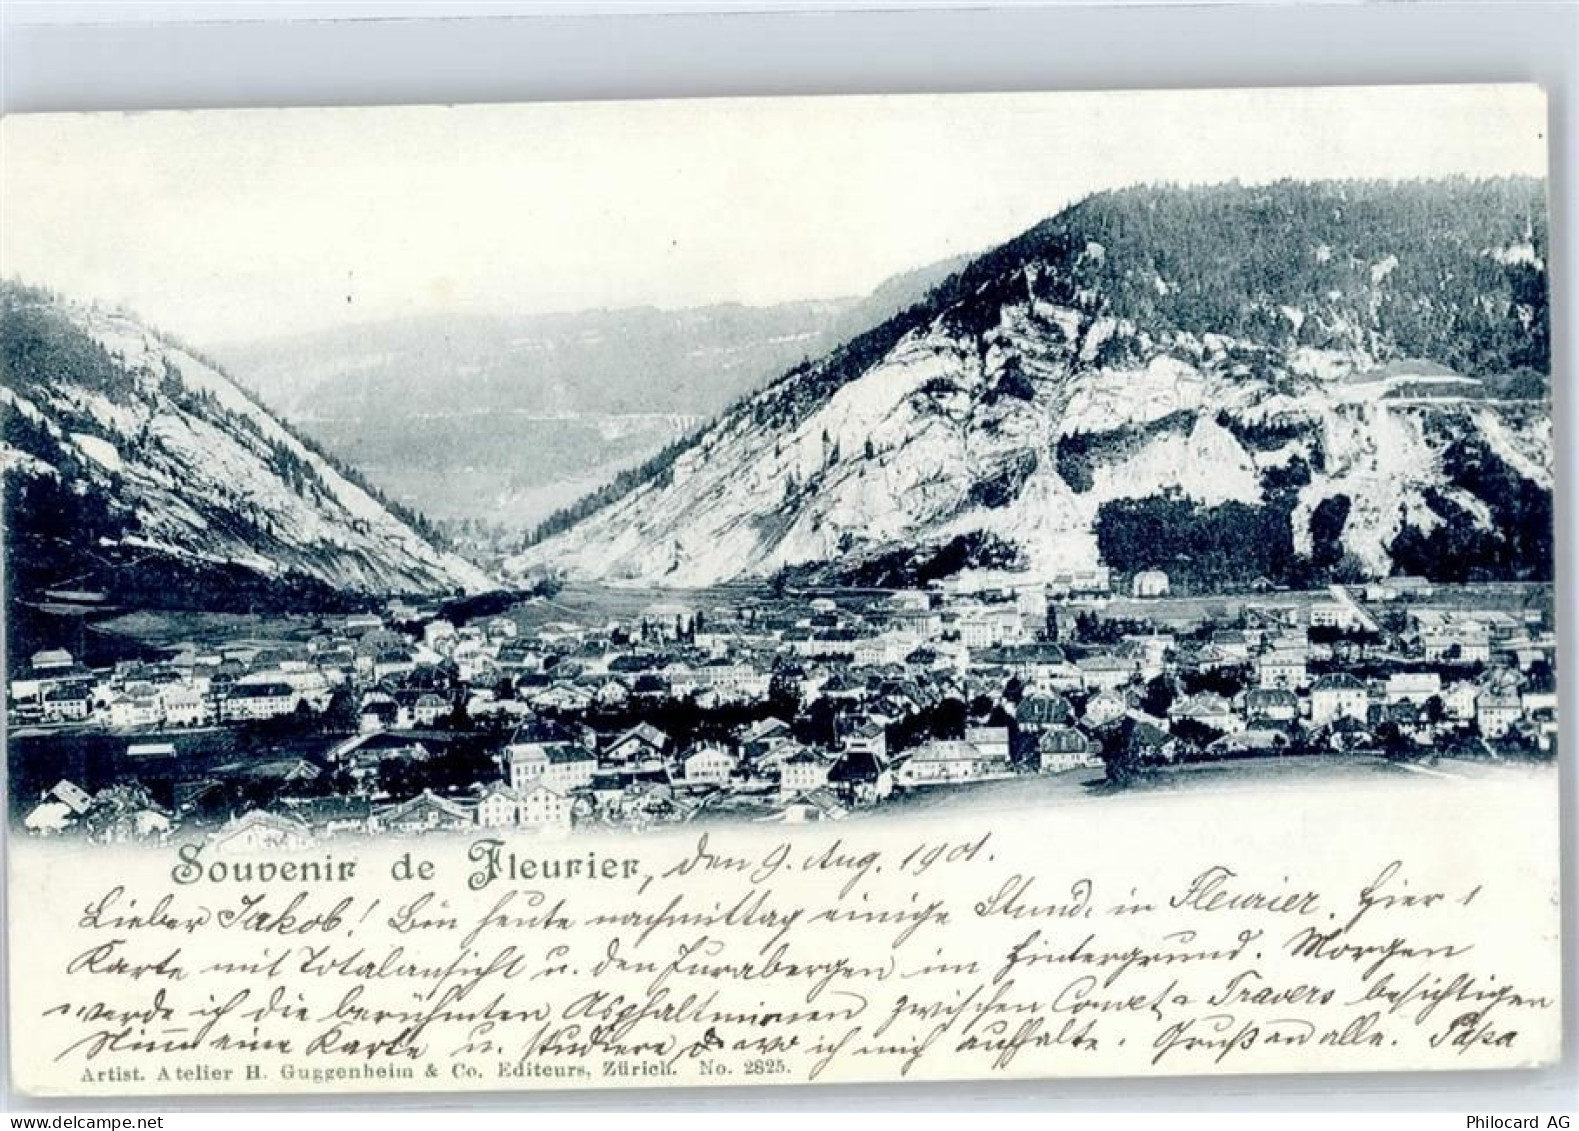 Souvenir de Fleurier, den 9. Aug. 1901.
Lieber Jakob! Bin heute nachmittag einige Stund. in Fleurier. Hier 1
Karte mit Totalansicht u. den Jurabergen im Hintergrund. Morgen
werde ich die berühmten Asphaltminen zwischen Couvet & Travers besichtigen
Nimm eine Karte u. studiere, wo ich mich aufhalte. Gruß an alle. Papa
Artist. Atelier H. Guggenheim & Co. Editeurs, Zürich. No. 2825.
Philocard AG